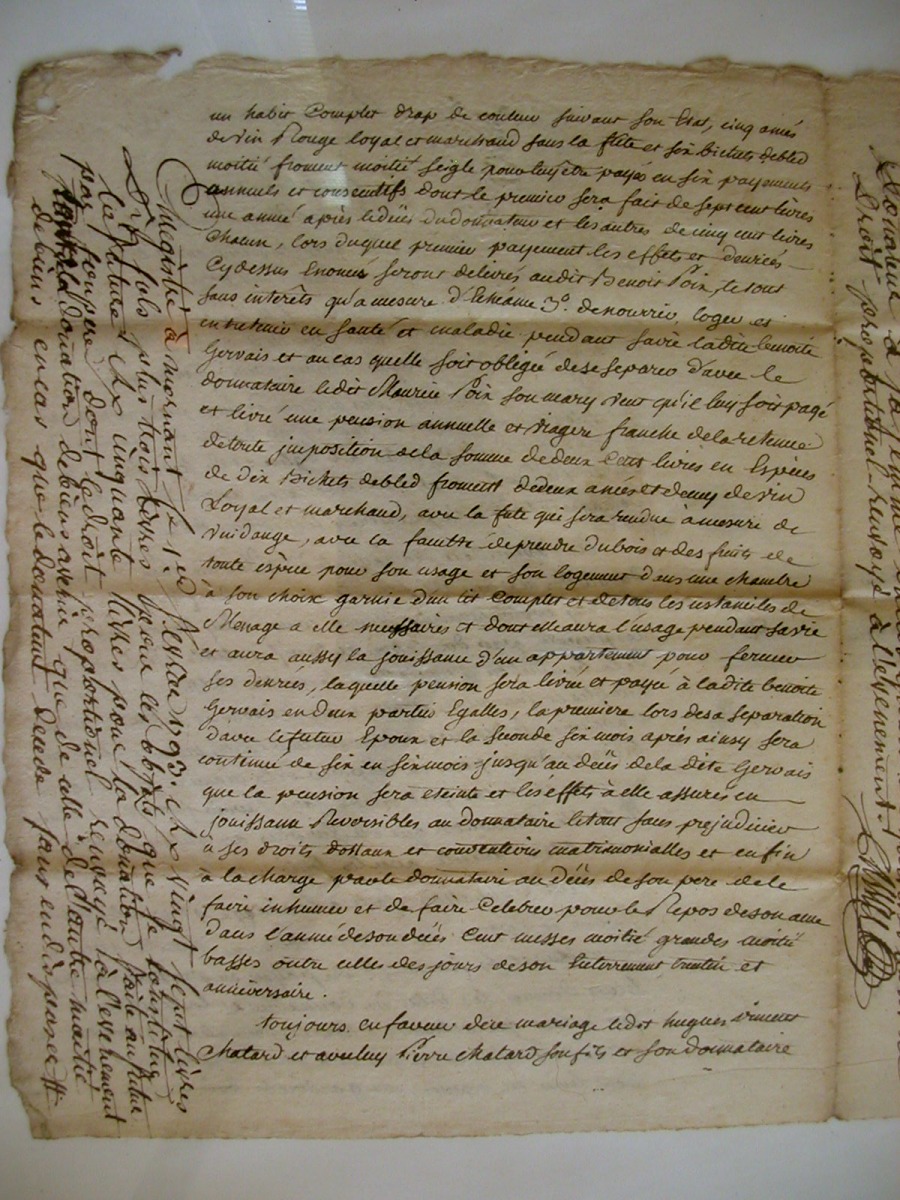 un habit Complet drap de couleur suivant son Etat, cinq anées
de vin Rouge loyal et marchand sans la futte et six bichets de bled
moitié froment moitié seigle pour luy etre payée en six payements
annuels et consecutifs dont le premier sera fait de sept cent livres
une année après le décès du donnateur et les autres de cinq cent livres
chacun, lors duquel premier payement les effets et denrées
Cydessus Enoncés seront delivrés audit Benoit Poix, le tout
sans interêts qu'a mesure d'Echéance 3°. de nourrir, loger et
entretenir en santé et maladie pendant sa vie ladite benoite
Gervais et au cas quelle soit obligée de se separer d'avec le
donnataire ledit Maurice Poix son mary veut qu'il luy soit payé
et livré une pension annuelle et viagere franche de la retenue
de toute jmposition de la somme de deux Cent livres en Espèces
de dix Bichets de bled froment de deux anées et demy de vin
Loyal et marchand, avec la fute qui sera rendue à mesure de
Vuidange, avec la faculté de prendre du bois et des fruits de
toute espèce pour son usage et son logement dans une chambre
à son choix garnie d'un lit Complet et de tous les ustanciles de
Menage a elle necessaires et dont elle aura l'usage pendant sa vie
et aura aussy la jouissance d'un appartement pour fermer
ses denrées, laquelle pension sera livrée et payée à ladite benoite
Gervais en deux parties Egalles, la premiere lors de sa separation
d'avec le futur Epoux et la seconde six mois après ainsy sera
continué de six en six mois jusqu'au décès de la dite Gervais
que la pension sera eteinte et les effets à elle assurés en
jouissance Reversibles au donnataire le tout sans prejudicier
a ses droits dottaux et conventions matrimonialles et enfin
à la charge par le donnataire au décès de son pere de le
faire inhumer et de faire Celebrer pour le Repos de son ame
dans l'année de son décès Cent messes moitié grandes moitié
basses outre celles des jours de son Enterrement trentin et
anniversaire.
toujours en faveur de ce mariage ledit hugues vincent
Chatard et avec luy Pierre Chatard son fils et son donnataire
Enregistré à mornant le 1er 1793. Rx vingt sept livres
Dix sols plus trois livres pour les objets que se constitue
la future et Rx cinquante livres pour la donation faite au futur
par son père dont le droit proportionel renvoyé à l'evenement
donation de biens avenir que de celle de l'autre moitié
de biens en cas que le donateur decede sans en disposer #
Droit proportionel renvoyé à l'evenement.